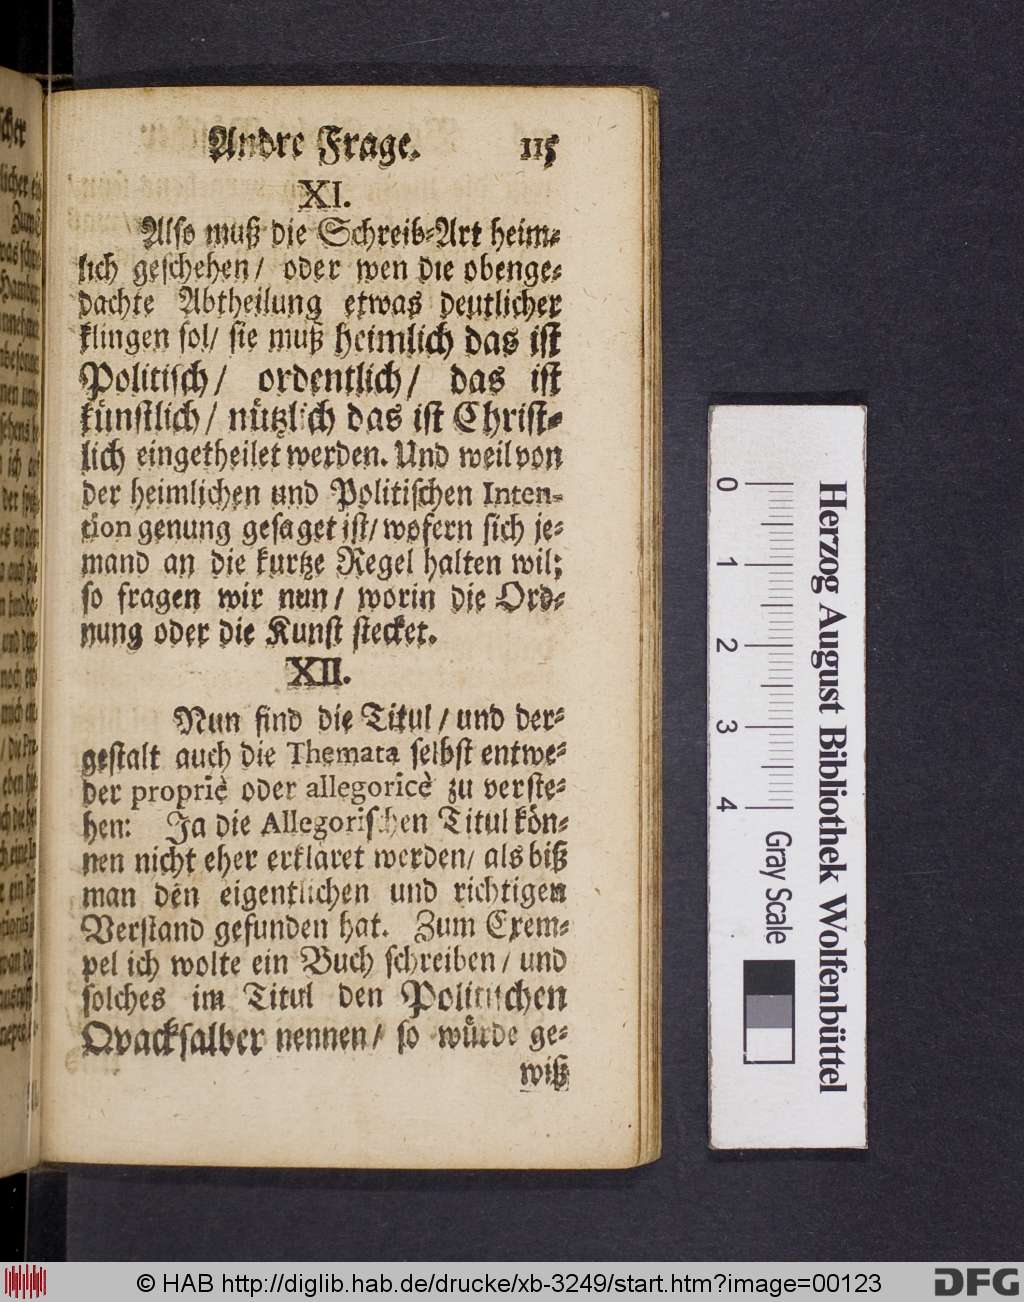 Andre Frage. 115
XI.
Also muß die Schreib-Art heim-
lich geschehen / oder wen die obenge-
dachte Abtheilung etwas deutlicher
klingen sol / sie muß heimlich das ist
Politisch / ordentlich / das ist
künstlich / nützlich das ist Christ-
lich eingetheilet werden. Und weil von
der heimlichen und Politischen Inten-
tion genung gesaget ist / wofern sich je-
mand an die kurtze Regel halten wil;
so fragen wir nun / worin die Ord-
nung oder die Kunst stecket.
XII.
Nun sind die Titul / und der-
gestalt auch die Themata selbst entwe-
der propriè oder allegoricè zu verste-
hen: Ja die Allegorischen Titul kön-
nen nicht eher erkläret werden / als biß
man den eigentlichen und richtigen
Verstand gefunden hat. Zum Exem-
pel ich wolte ein Buch schreiben / und
solches im Titul den Politischen
Qvacksalber nennen / so würde ge-
wiß
Herzog August Bibliothek Wolfenbüttel
0 1 2 3 4
Gray Scale
© HAB http://diglib.hab.de/drucke/xb-3249/start.htm?image=00123
DFG